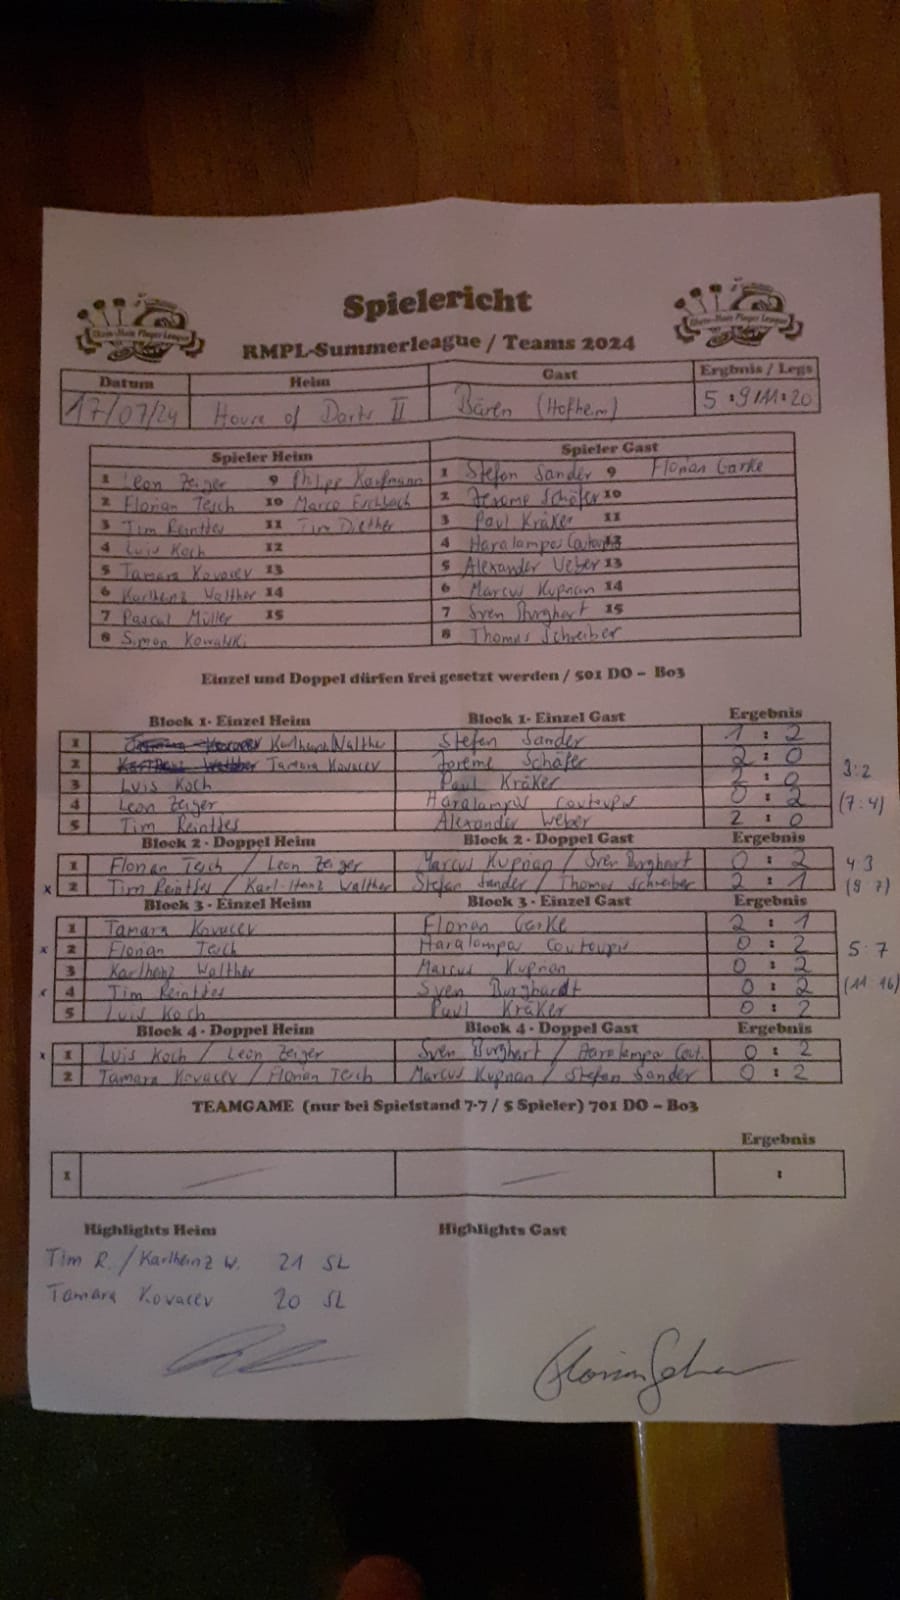 Spielericht
RMPL-Summerleague / Teams 2024
Datum Heim Gast Ergbnis / Legs
17/07/24 House of Darts II Bären (Hofheim) 5 : 9 / 11 : 20
Spieler Heim Spieler Gast
1 Leon Zeiger 9 Philipp Kaufmann 1 Stefan Sander 9 Florian Gerke
2 Florian Tesch 10 Marco Eschbach 2 Jerome Schäfer 10
3 Tim Reinttes 11 Tim Diether 3 Paul Kräker 11
4 Luis Koch 12 4 Haralampos
5 Tamara Kovacev 13 5 Alexander Weber 13
6 Karlheinz Walther 14 6 Marcus Kupnan 14
7 Pascal Müller 15 7 Sven Burghart 15
8 Simon Kowalski 8 Thomas Schreiber
Einzel und Doppel dürfen frei gesetzt werden / 501 DO - Bo3
Block 1- Einzel Heim Block 1- Einzel Gast Ergebnis
1 Karlheinz Walther Stefan Sander 1 : 2
2 Tamara Kovacev Jereme Schäfer 2 : 0
3 Luis Koch Paul Kräker 2 : 0 3:2
4 Leon Zeiger Haralampis Coutoupis 0 : 2 (7:4)
5 Tim Reinttes Alexander Weber 2 : 0
Block 2 - Doppel Heim Block 2 - Doppel Gast Ergebnis
1 Florian Tesch / Leon Zeiger Marcus Kupnan / Sven Burghart 0 : 2 4 3
x 2 Tim Reinttes / Karl-Heinz Walther Stefan Sander / Thomas Schreiber 2 : 1 (9 7)
Block 3 - Einzel Heim Block 3 - Einzel Gast Ergebnis
1 Tamara Kovacev Florian Gerke 2 : 1
x 2 Florian Tesch Haralampos Coutoupis 0 : 2 5 : 7
3 Karlheinz Walther Marcus Kupnan 0 : 2
x 4 Tim Reinttes Sven Burghardt 0 : 2 (11 16)
5 Luis Koch Paul Kräker 0 : 2
Block 4 - Doppel Heim Block 4 - Doppel Gast Ergebnis
x 1 Luis Koch / Leon Zeiger Sven Burghart / Haralampos Cout. 0 : 2
2 Tamara Kovacev / Florian Tesch Marcus Kupnan / Stefan Sander 0 : 2
TEAMGAME (nur bei Spielstand 7-7 / 5 Spieler) 701 DO - Bo3
Ergebnis
1 :
Highlights Heim Highlights Gast
Tim R. / Karlheinz W. 21 SL
Tamara Kovacev 20 SL